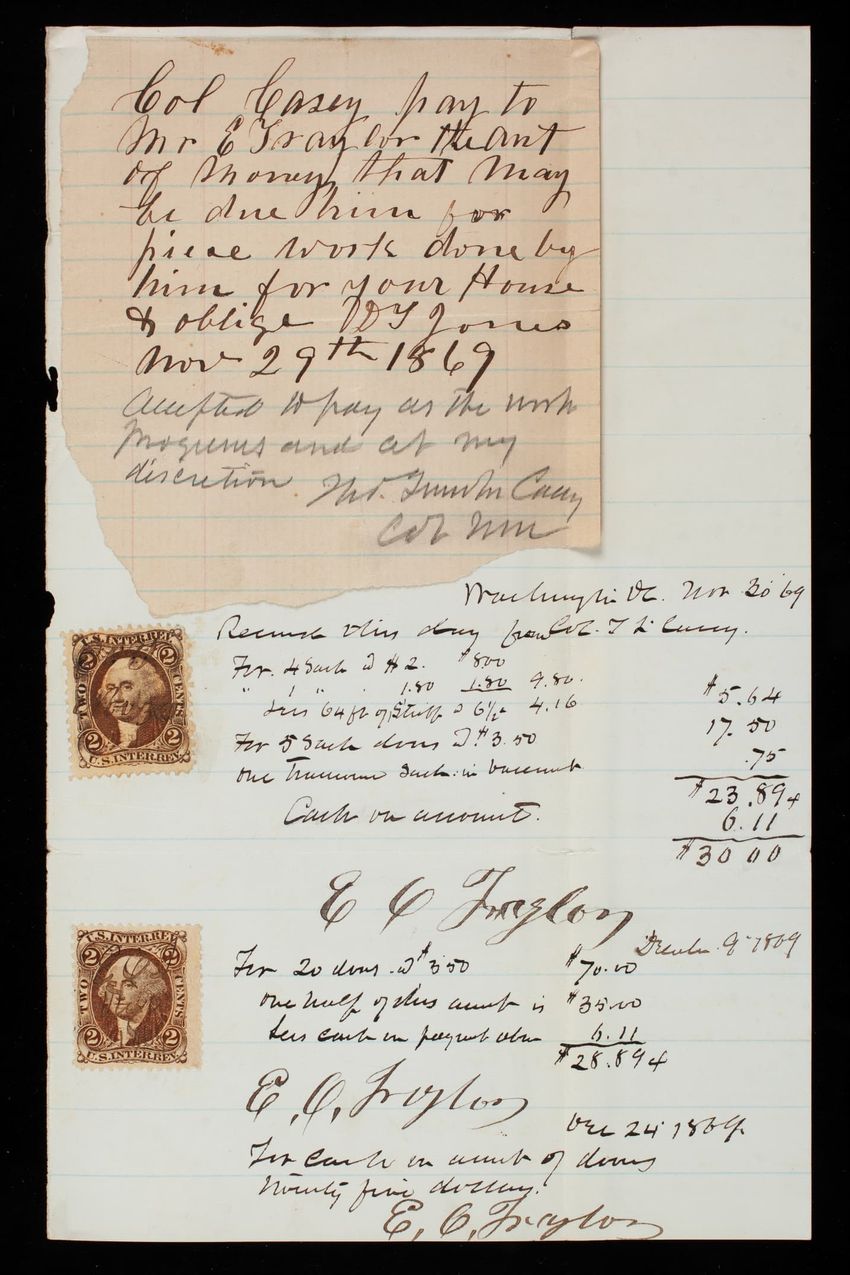 Col Casey pay to
Mr E Traylor the amt
of money that may
be due him for
piece work done by
him for your House
& oblige D T Jones
Nov 29th 1869
Accepted to pay as the work
progresses and at my
discretion Tho. Lincoln Casey
Col
Washington DC. Nov 30 69
Received this day from Col. T L Casey.
For 4 Sash @ $2. $800
" 1 " 1.80 1.80 9.80.
Less 64 ft of Stuff @ 6½ 4.16
$5.64
For 5 Sash doors @ $3.50
17.50
one Transom Sash in basement
.75
$23.89
Cash on account.
6.11
$30 00
E C Traylor
U.S. INTER. REV.
2 2
TWO CENTS
2 2
U.S. INTER. REV.
December 9 1869
For 20 doors @ $3 50 $70.00
one half of this amount is $35.00
Less cash on payment above 6.11
$28.89
E. C. Traylor
U.S. INTER. REV.
2 2
TWO CENTS
2 2
U.S. INTER. REV.
Dec 24 1869
For cash on account of doors
twenty five dollars.
E. C. Traylor